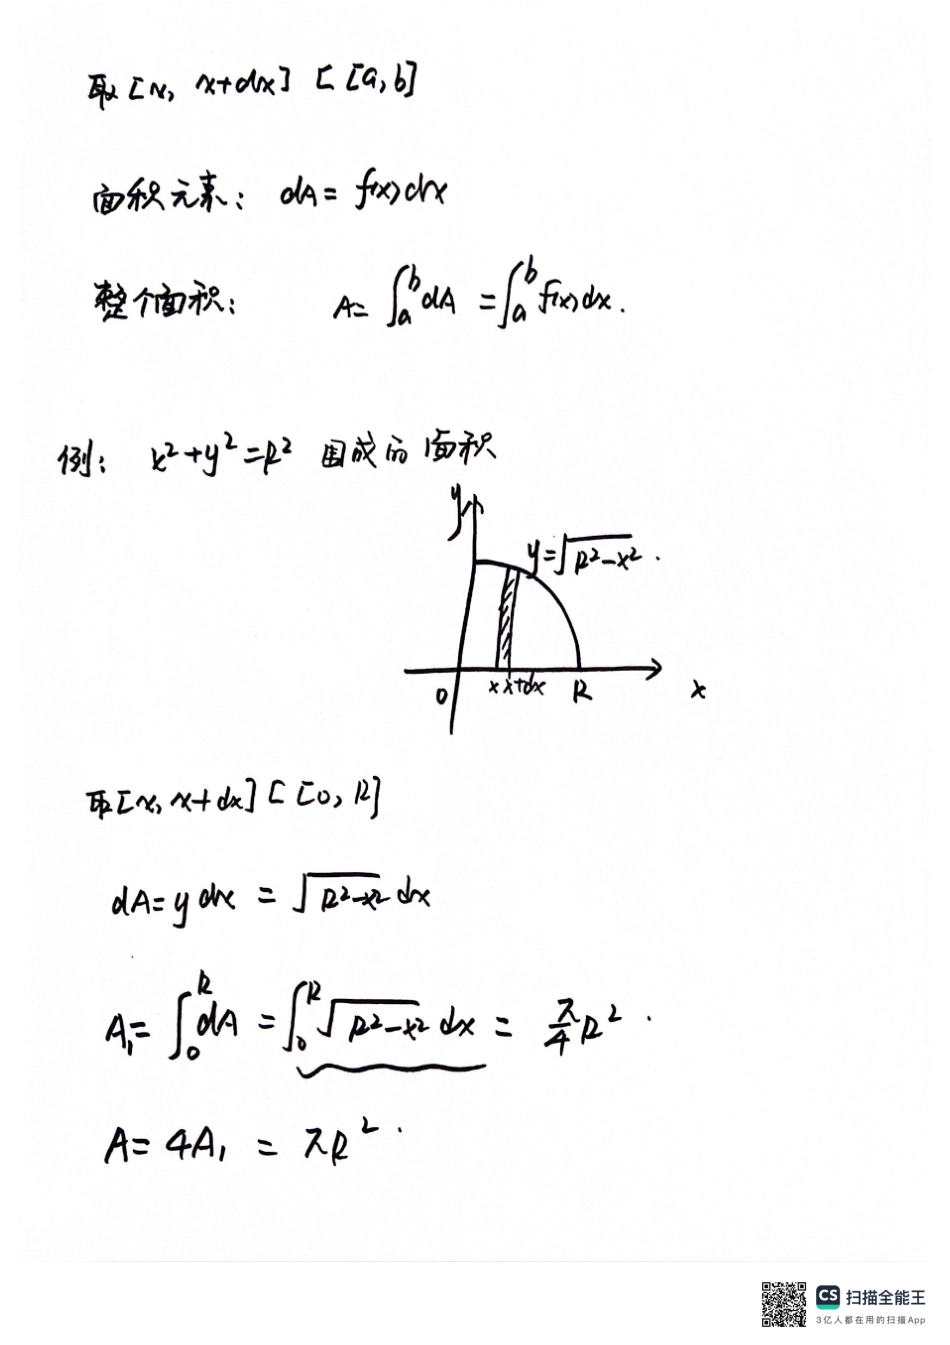 取[x, x+dx] ⊂ [a,b]
面积元素: dA = f(x)dx
整个面积: A = ∫_a^b dA = ∫_a^b f(x)dx.
例: x²+y²=R² 围成的面积
y
y=√(R²-x²).
0 x x+dx R x
取[x, x+dx] ⊂ [0, R]
dA = y dx = √(R²-x²) dx
A₁ = ∫_0^R dA = ∫_0^R √(R²-x²) dx = π/4 R².
A = 4A₁ = πR².
CS 扫描全能王
3亿人都在用的扫描App